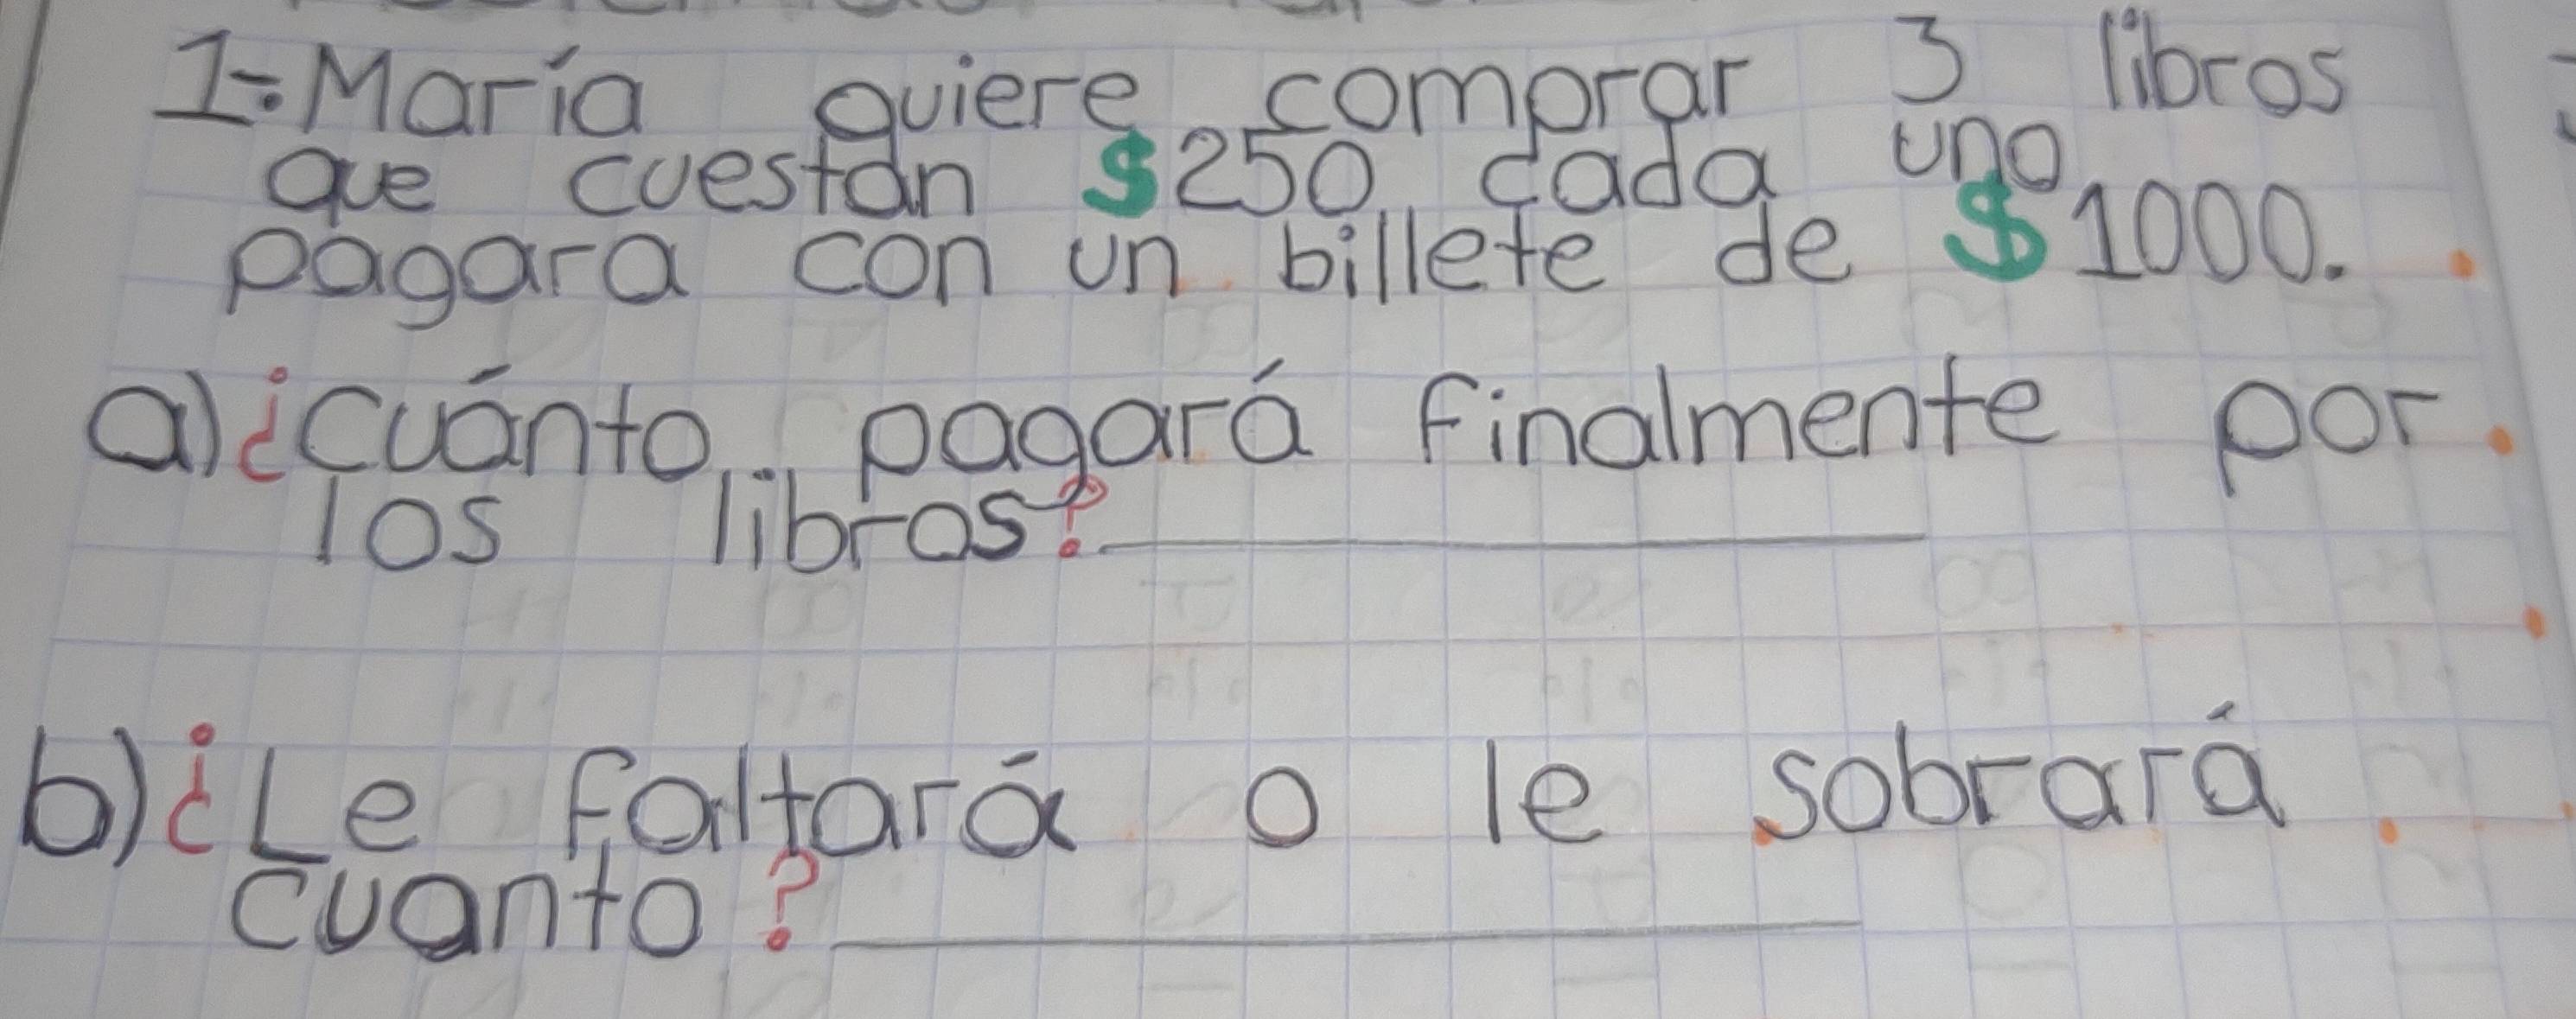 1-: María quiere comprar 3 libros
que cuestan $250 cada uno
pagara con un billete de $1000.
a) ¿Cuánto pagará finalmente por
los libros?
b) ¿Le faltará o le sobrará
cuanto?